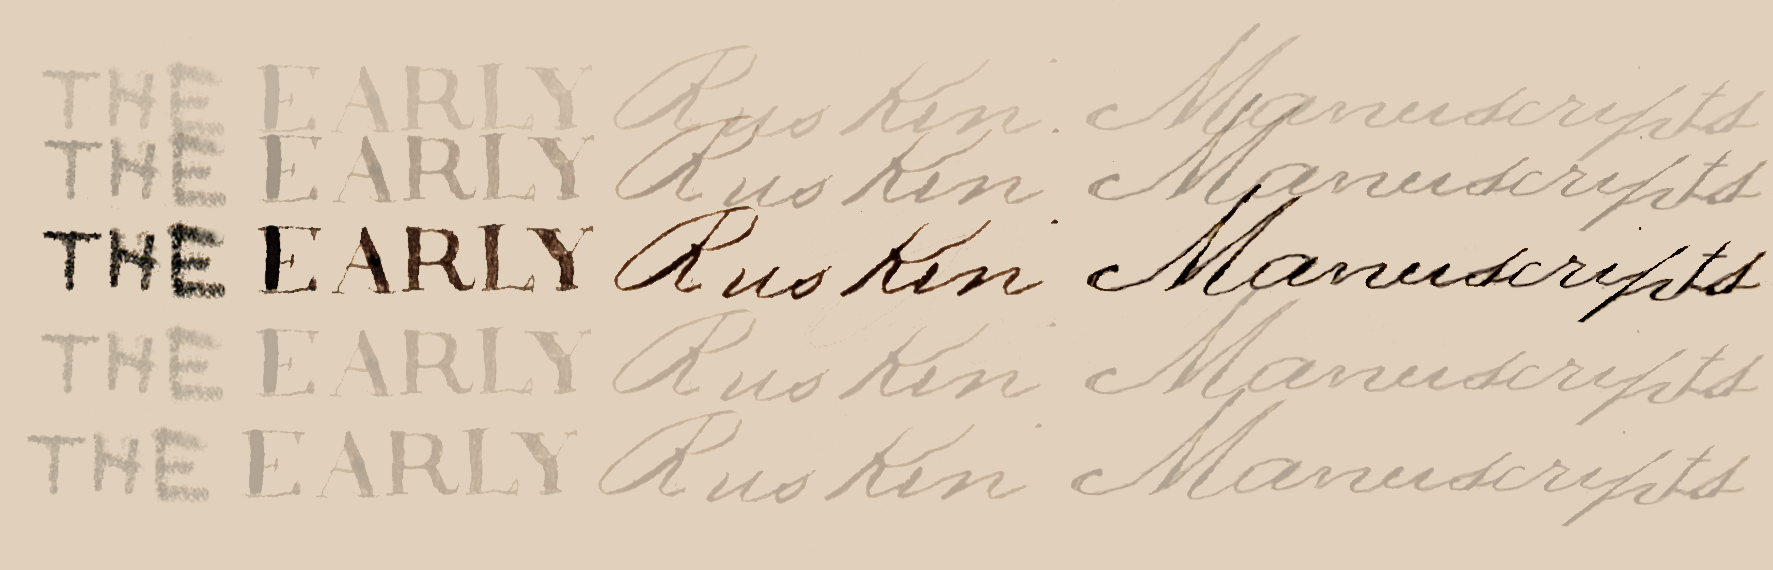 THE EARLY Ruskin Manuscripts
THE EARLY Ruskin Manuscripts
THE EARLY Ruskin Manuscripts
THE EARLY Ruskin Manuscripts
THE EARLY Ruskin Manuscripts